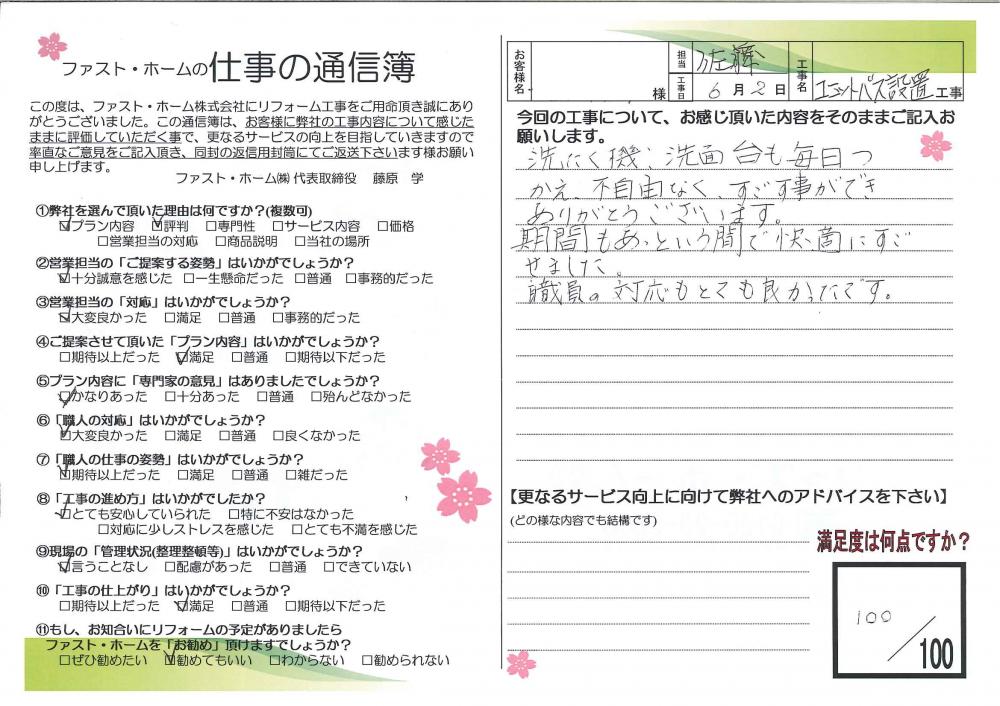 ファスト・ホームの仕事の通信簿
この度は、ファスト・ホーム株式会社にリフォーム工事をご用命頂き誠にあり
がとうございました。この通信簿は、お客様に弊社の工事内容について感じた
ままに評価していただく事で、更なるサービスの向上を目指していきますので
率直なご意見をご記入頂き、同封の返信用封筒にてご返送下さいます様お願い
申し上げます。
ファスト・ホーム㈱ 代表取締役 藤原 学
①弊社を選んで頂いた理由は何ですか?(複数可)
☑プラン内容 ☑評判 □専門性 □サービス内容 □価格
□営業担当の対応 □商品説明 □当社の場所
②営業担当の「ご提案する姿勢」はいかがでしょうか?
☑十分誠意を感じた □一生懸命だった □普通 □事務的だった
③営業担当の「対応」はいかがでしょうか?
☑大変良かった □満足 □普通 □事務的だった
④ご提案させて頂いた「プラン内容」はいかがでしょうか?
□期待以上だった ☑満足 □普通 □期待以下だった
⑤プラン内容に「専門家の意見」はありましたでしょうか?
☑かなりあった □十分あった □普通 □殆んどなかった
⑥「職人の対応」はいかがでしょうか?
☑大変良かった □満足 □普通 □良くなかった
⑦「職人の仕事の姿勢」はいかがでしょうか?
☑期待以上だった □満足 □普通 □雑だった
⑧「工事の進め方」はいかがでしたか?
☑とても安心していられた □特に不安はなかった
□対応に少しストレスを感じた □とても不満を感じた
⑨現場の「管理状況(整理整頓等)」はいかがでしょうか?
☑言うことなし □配慮があった □普通 □できていない
⑩「工事の仕上がり」はいかがでしょうか?
□期待以上だった ☑満足 □普通 □期待以下だった
⑪もし、お知合いにリフォームの予定がありましたら
ファスト・ホームを「お勧め」頂けますでしょうか?
□ぜひ勧めたい ☑勧めてもいい □わからない □勧められない
お客様名 様 担当 佐藤 工事日 6月2日 工事名 ユニットバス設置工事
今回の工事について、お感じ頂いた内容をそのままご記入お
願いします。
洗たく機、洗面台も毎日つ
かえ、不自由なく、すごす事ができ
ありがとうございます。
期間もあっという間で快適にすご
せました。
職員の対応もとても良かったです。
【更なるサービス向上に向けて弊社へのアドバイスを下さい】
(どの様な内容でも結構です)
満足度は何点ですか?
100/100